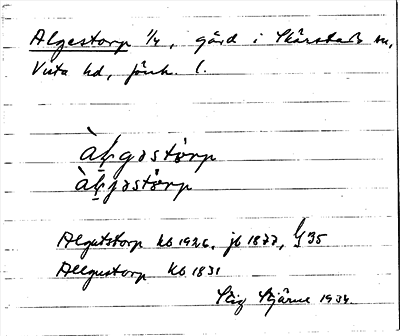 Algestorp 1/4, gård i Skärstads sn,
Vista hd, jönk. l.
Algutstorp kb 1926, jb 1877, G 35
Allgustorp kb 1831
Stig Stjärne 1934.